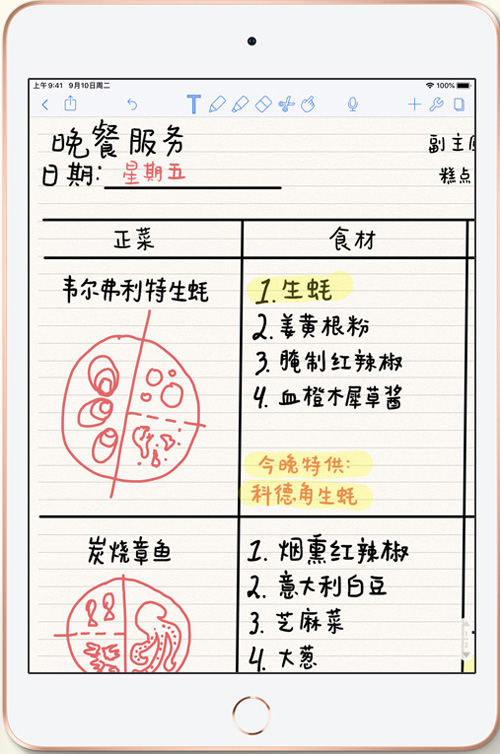 上午9:41 9月10日周二
100%
晚餐服务
副主厨
日期: 星期五
糕点
正菜
食材
韦尔弗利特生蚝
1. 生蚝
2. 姜黄根粉
3. 腌制红辣椒
4. 血橙木犀草酱
今晚特供:
科德角生蚝
炭烧章鱼
1. 烟熏红辣椒
2. 意大利白豆
3. 芝麻菜
4. 大葱